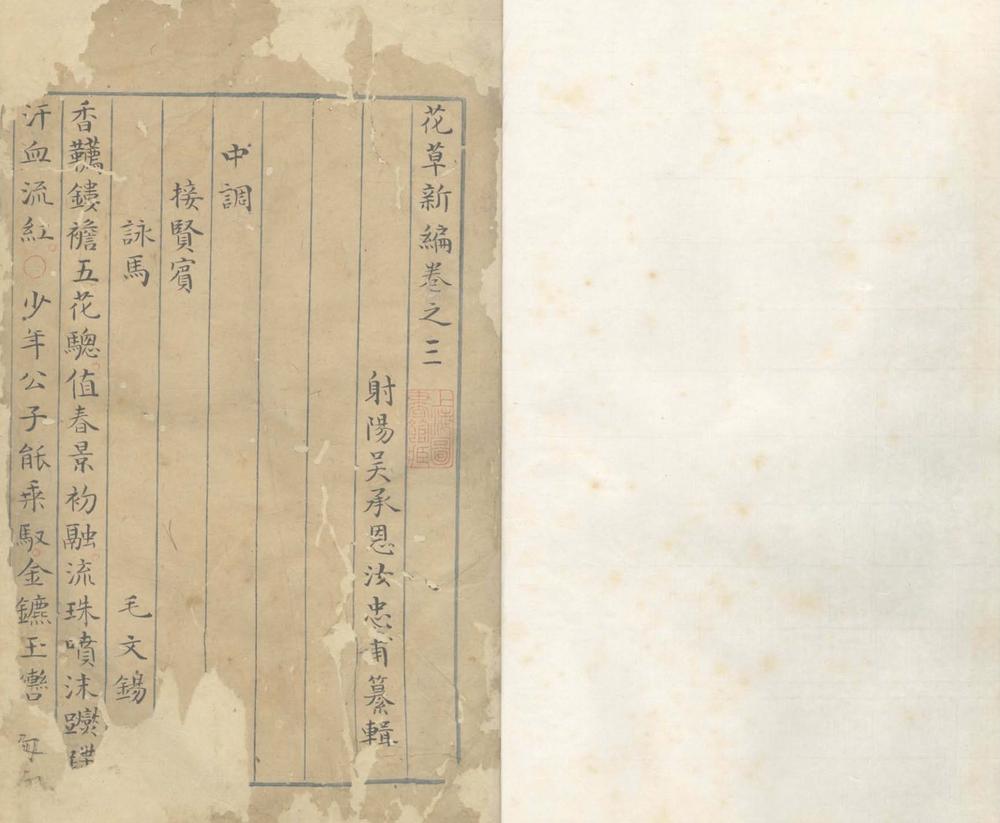 花草新編卷之三
上海圖書館藏
射陽吳承恩汝忠甫纂輯
中調
接賢賓
詠馬 毛文錫
香韉鏤襜五花驄值春景初融流珠噴沫躞蹀
汗血流紅〇少年公子能乗馭金鑣玉轡